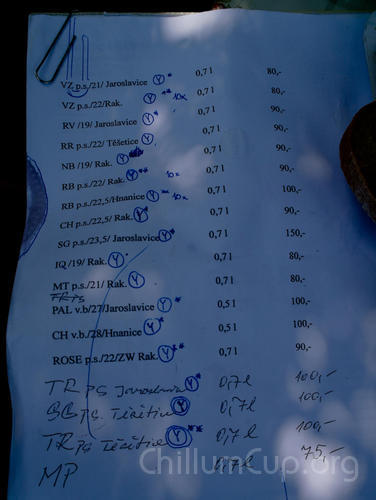 VZ p.s./21/ Jaroslavice Y * 0,7 l 80,-
VZ p.s./22/Rak. Y ** 10x 0,7 l 80,-
RV /19/ Jaroslavice Y * 0,7 l 90,-
RR p.s./22/ Těšetice Y 0,7 l 90,-
NB /19/ Rak. Y 0,7 l 90,-
RB p.s./22/ Rak. Y ** 10x 0,7 l 90,-
RB p.s./22,5/Hnanice Y ** 10x 0,7 l 100,-
CH p.s./22,5/ Rak. Y * 0,7 l 90,-
SG p.s./23,5/ Jaroslavice Y * 0,7 l 150,-
IQ /19/ Rak. Y 0,7 l 80,-
MT p.s./21/ Rak. Y 0,7 l 80,-
PAL v.b/27/Jaroslavice Y * 0,5 l 100,-
CH v.b./28/Hnanice Y * 0,5 l 100,-
ROSE p.s./22/ZW Rak. Y ** 0,7 l 90,-
TR PS Jaroslavice Y * 0,7l 100,-
PS Těšetice Y 0,7l 100,-
TR PS Těšetice Y ** 0,7l 100,-
MP 0,7l 75,-
ChillumCup.org